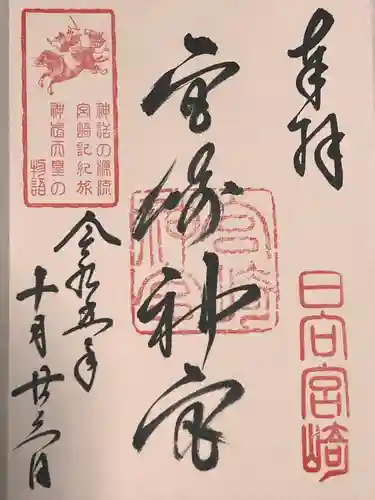 奉拝
日向宮崎
宮崎神宮
神話の源流
宮崎記紀旅
神武天皇の
物語
令和五年
十月廿六日